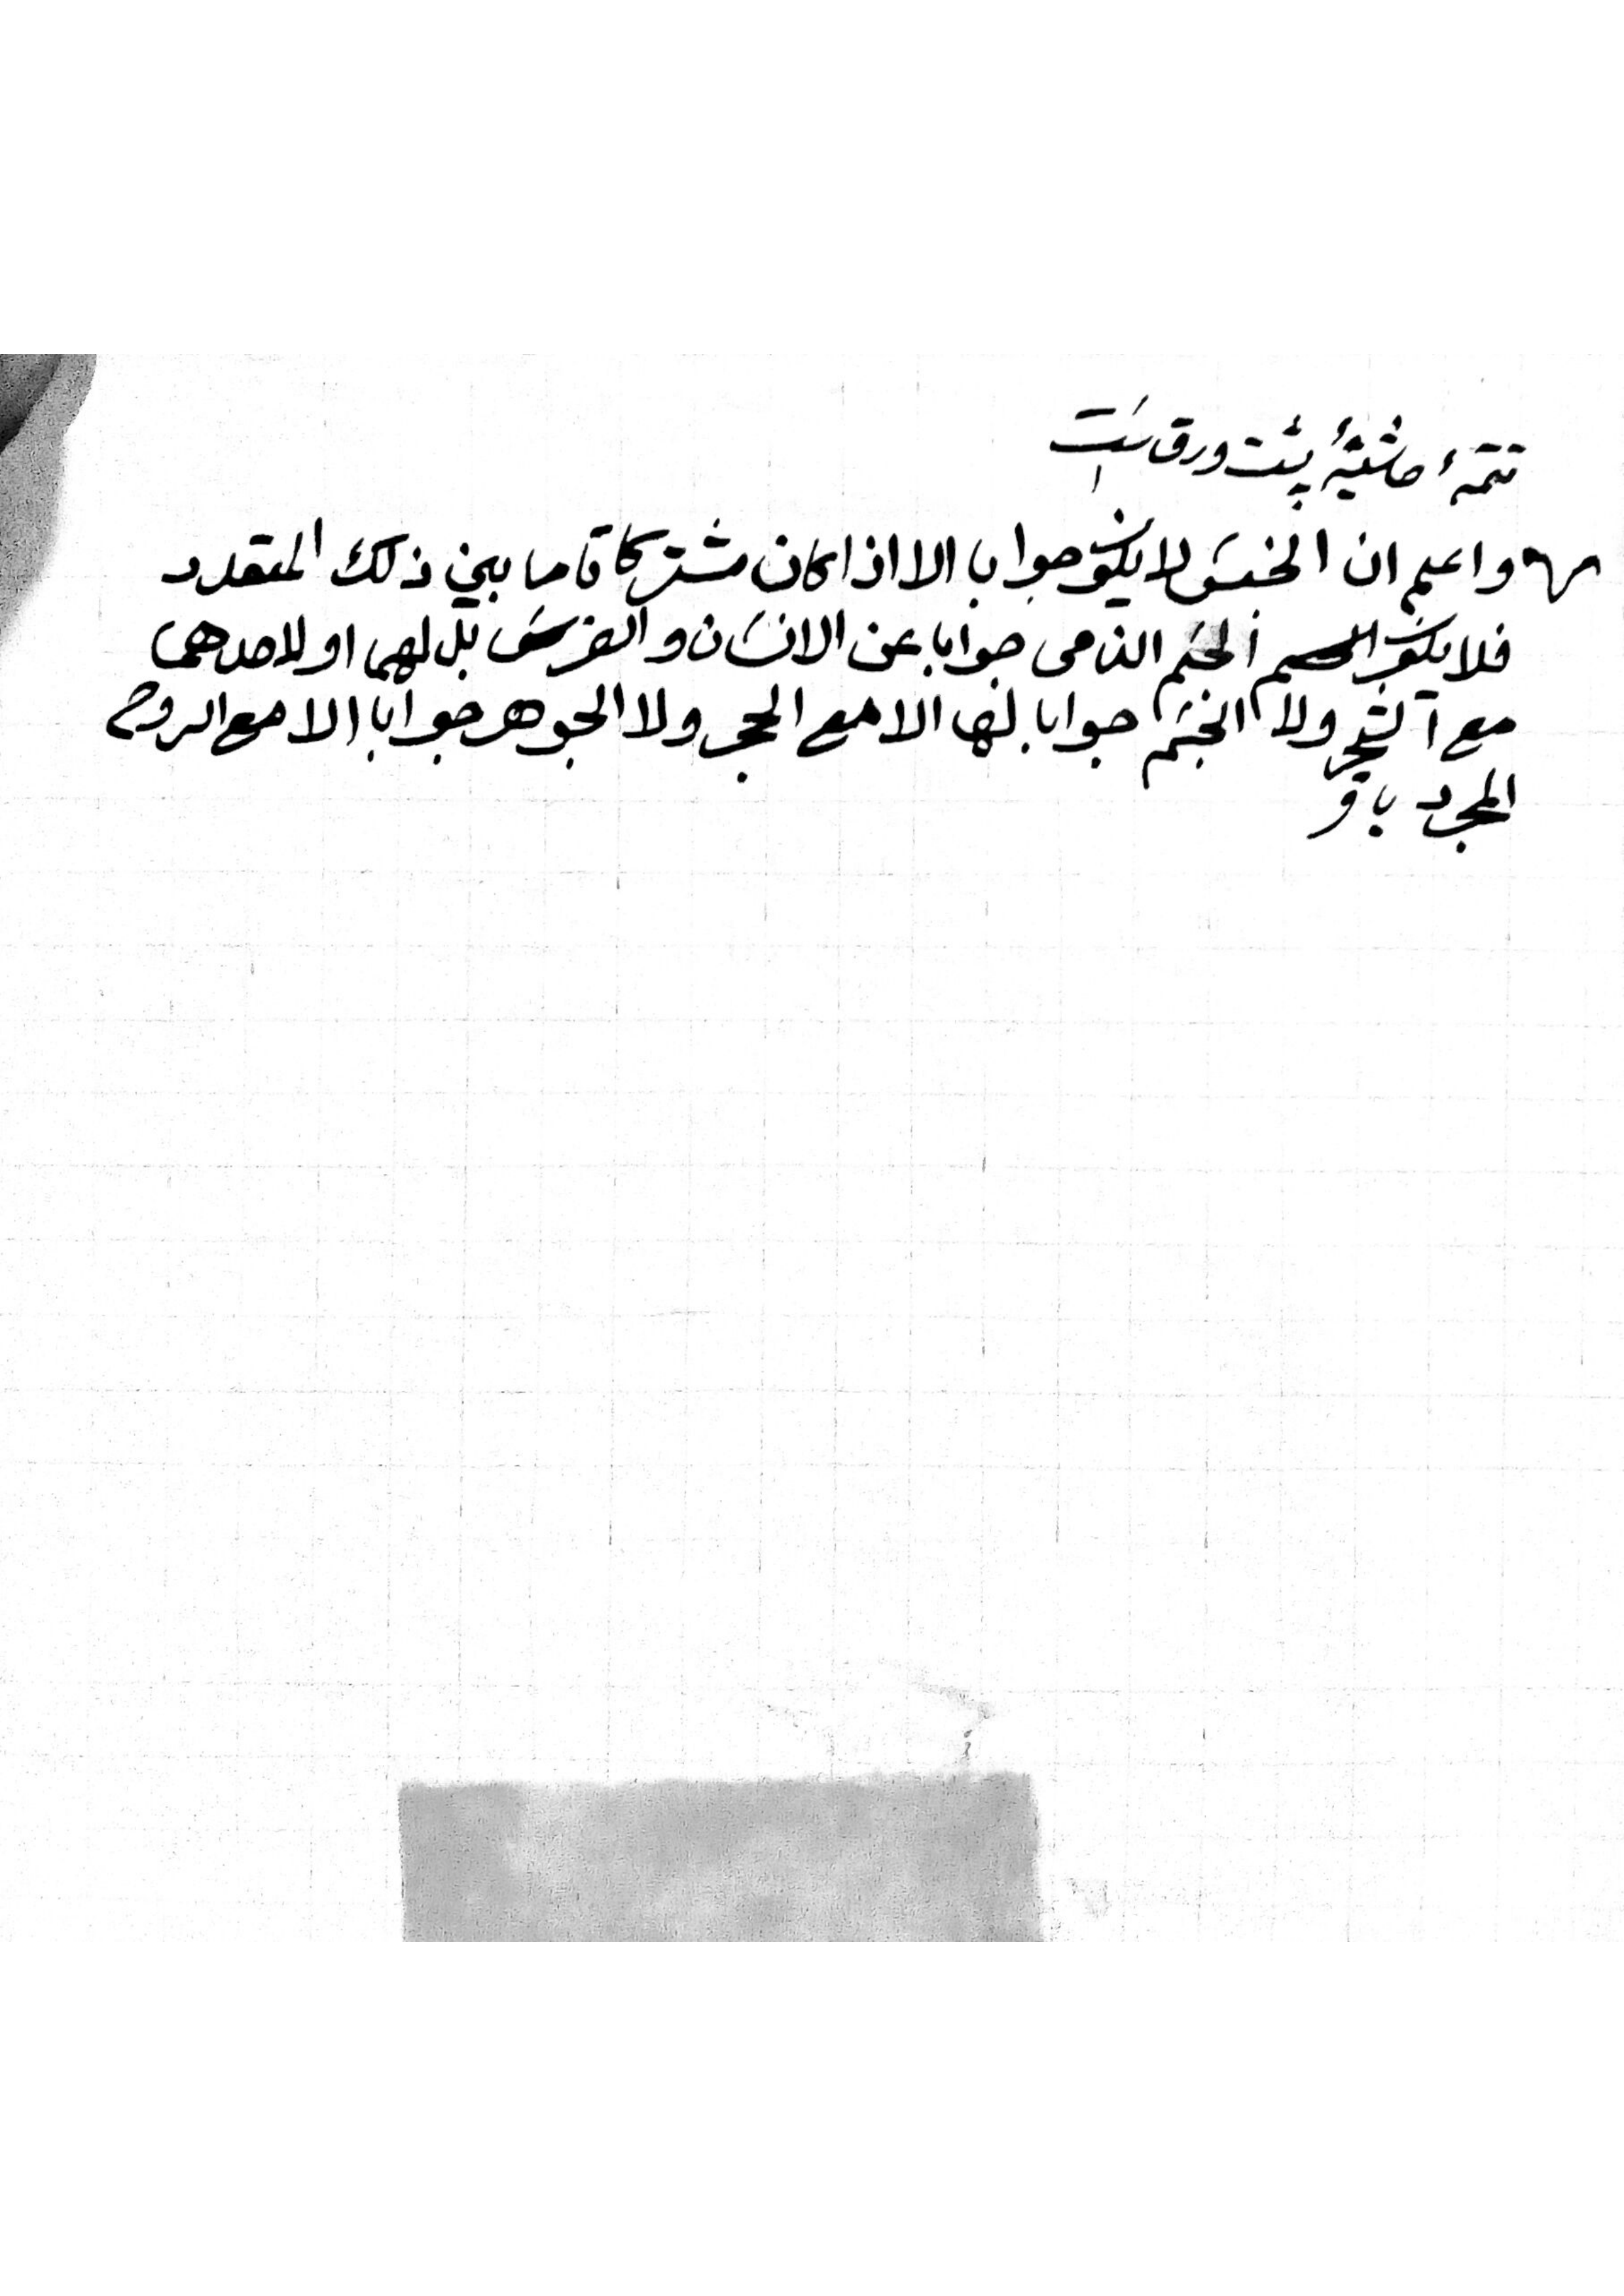 تتمهٔ حاشیهٔ پشت ورق است
واعلم ان الجنس لا يكون جوابا الا اذا كان مشتركا تاما بين ذلك المتعدد
فلا يكون الجسم النامى جوابا عن الانسان والفرس بل لهما او لاحدهما
مع الشجر ولا الجسم جوابا لها الا مع الحجر ولا الجوهر جوابا الا مع الروح
المجرد